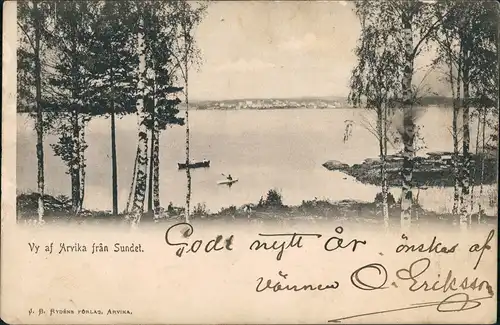 Vy af Arvika från Sundet.
Godt nytt år önskas af
vännen O. Eriksson
Förlag, Arvika.